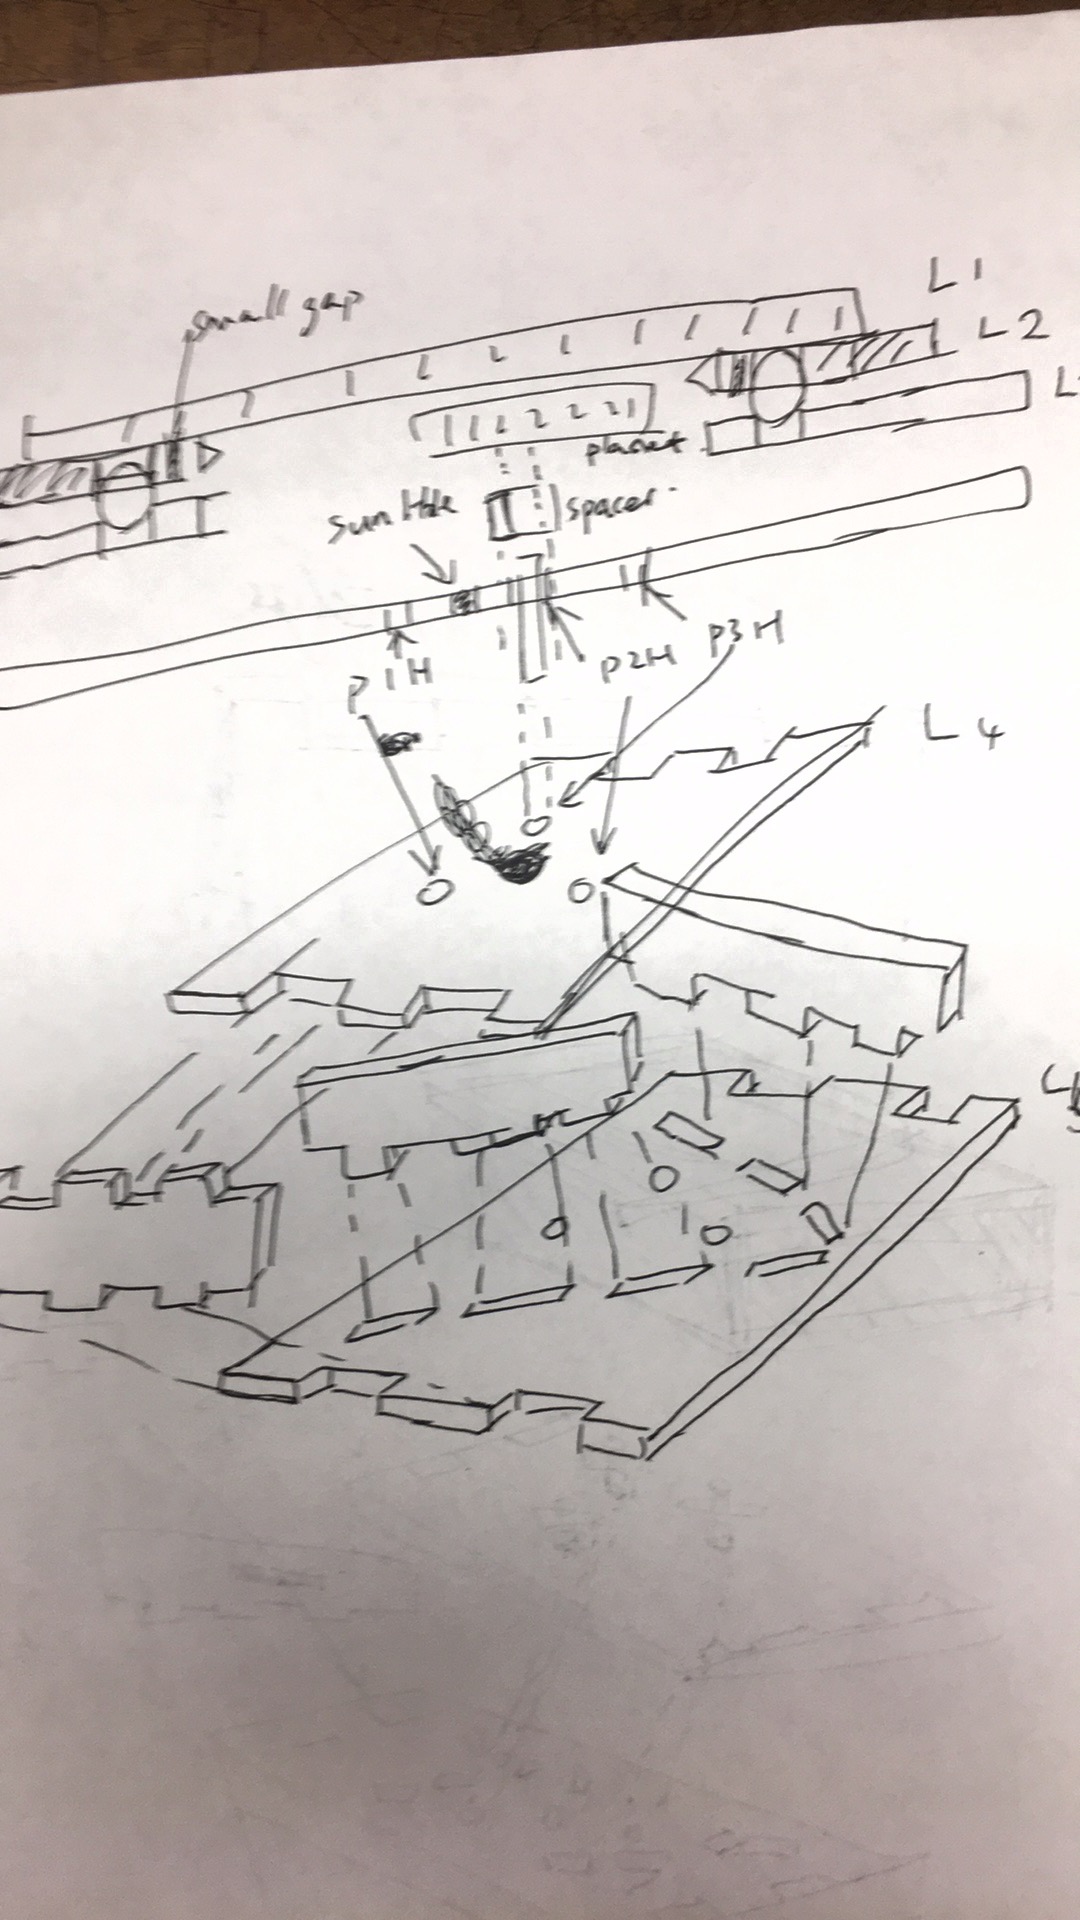 small gap
L1
L2
L
planet
Sun Hole
spacer
P1H
P2H
P3H
L4
L5